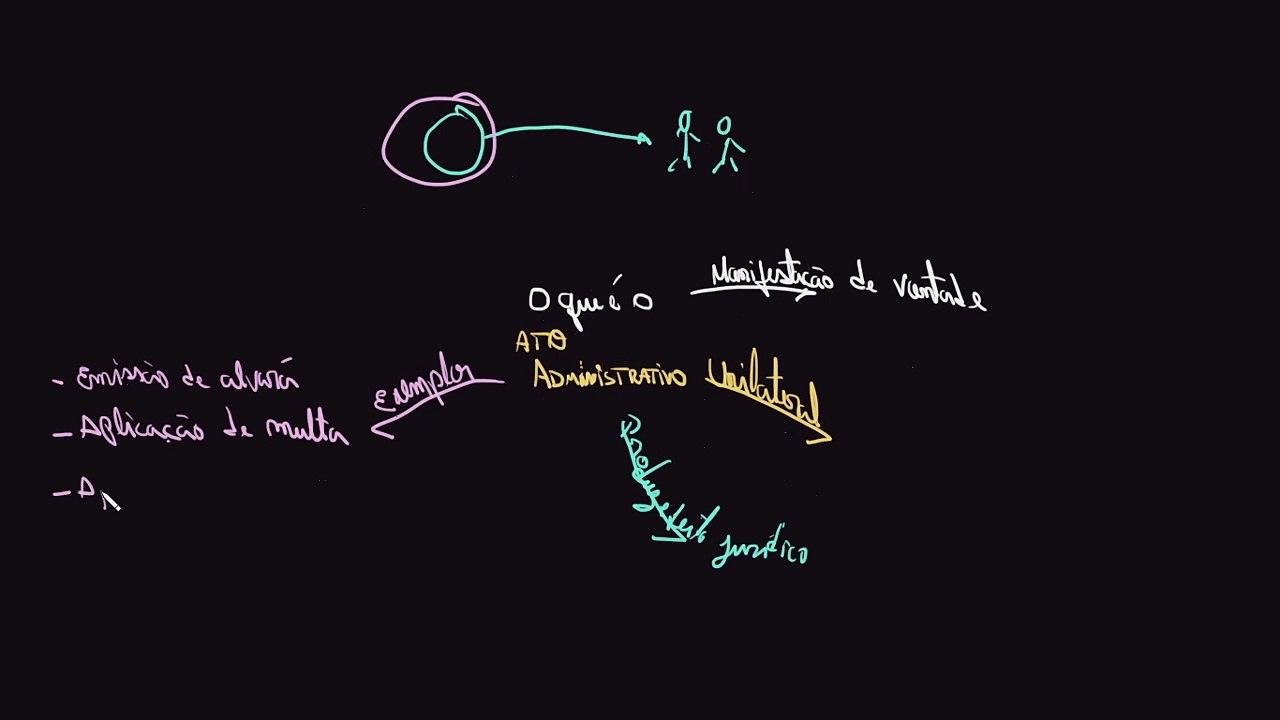 O que é o
Manifestação de vontade
ATO
ADMINISTRATIVO
Unilateral
Exemplos
- Emissão de alvará
- Aplicação de multa
- A
Produz efeito jurídico